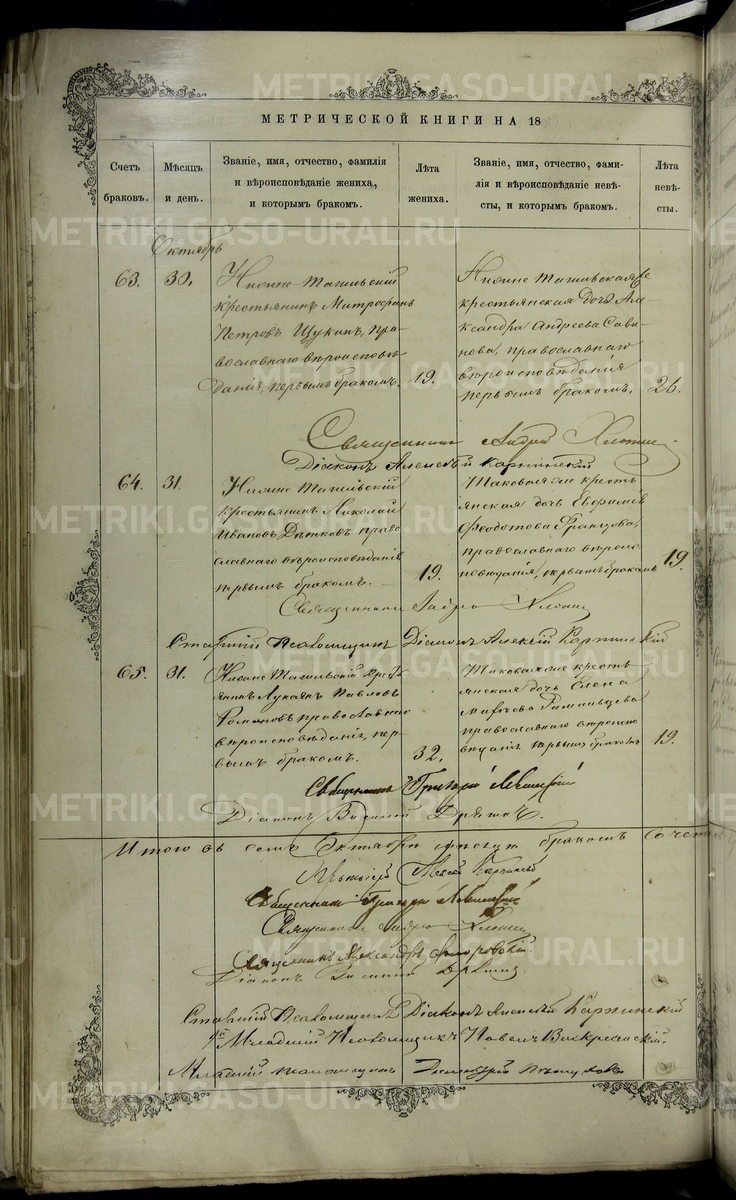 МЕТРИЧЕСКОЙ КНИГИ НА 18
Счетъ
браковъ.
Мѣсяцъ
и день.
Званіе, имя, отчество, фамилія
и вѣроисповѣданіе жениха,
и которымъ бракомъ.
Лѣта
жениха.
Званіе, имя, отчество, фами-
лія и вѣроисповѣданіе невѣ-
сты, и которымъ бракомъ.
Лѣта
невѣ-
сты.
Октябрь
63.
30.
Нижне-Тагильскій
крестьянинъ Митрофанъ
Петровъ Щукинъ, пра-
вославнаго вѣроисповѣ-
данія, первымъ бракомъ.
19.
Нижне Тагильская
крестьянская дочь Але-
ксандра Андреева Сави-
нова, православнаго
вѣроисповѣданія
первымъ бракомъ.
26.
Священникъ Андрей
Діаконъ Алексѣй Карпинскій
64.
31.
Нижне Тагильскій
крестьянинъ Николай
Ивановъ право-
славнаго вѣроисповѣданія
первымъ бракомъ.
19.
Таковая же кресть-
янская дочь Евфимія
Ѳеодотова
православнаго вѣроис-
повѣданія, первымъ бракомъ
19.
Священникъ Андрей
Старшій Псаломщикъ Діаконъ Алексѣй Карпинскій
65.
31.
Нижне Тагильскій крест-
янинъ Лукаянъ Павловъ
Романовъ православнаго
вѣроисповѣданія, пер-
вымъ бракомъ.
32.
Таковая же кресть-
янская дочь Елена
православнаго вѣроиспо-
вѣданія первымъ бракомъ
19.
Священникъ Григорій Левицкій
Діаконъ Василій
Итого въ семъ Октябрѣ мѣсяцѣ бракомъ сочет
Священникъ Григорій Левицкій
Священникъ Андрей
Священникъ Александръ
Діаконъ Василій
Старшій Псаломщикъ Діаконъ Алексѣй Карпинскій
Младшій Псаломщикъ Павелъ Воскресенскій.
Младшій псаломщикъ
METRIKI.GASO-URAL.RU
METRIKI.GASO-URAL.RU
METRIKI.GASO-URAL.RU
METRIKI.GASO-URAL.RU
METRIKI.GASO-URAL.RU
METRIKI.GASO-URAL.RU
METRIKI.GASO-URAL.RU
METRIKI.GASO-URAL.RU